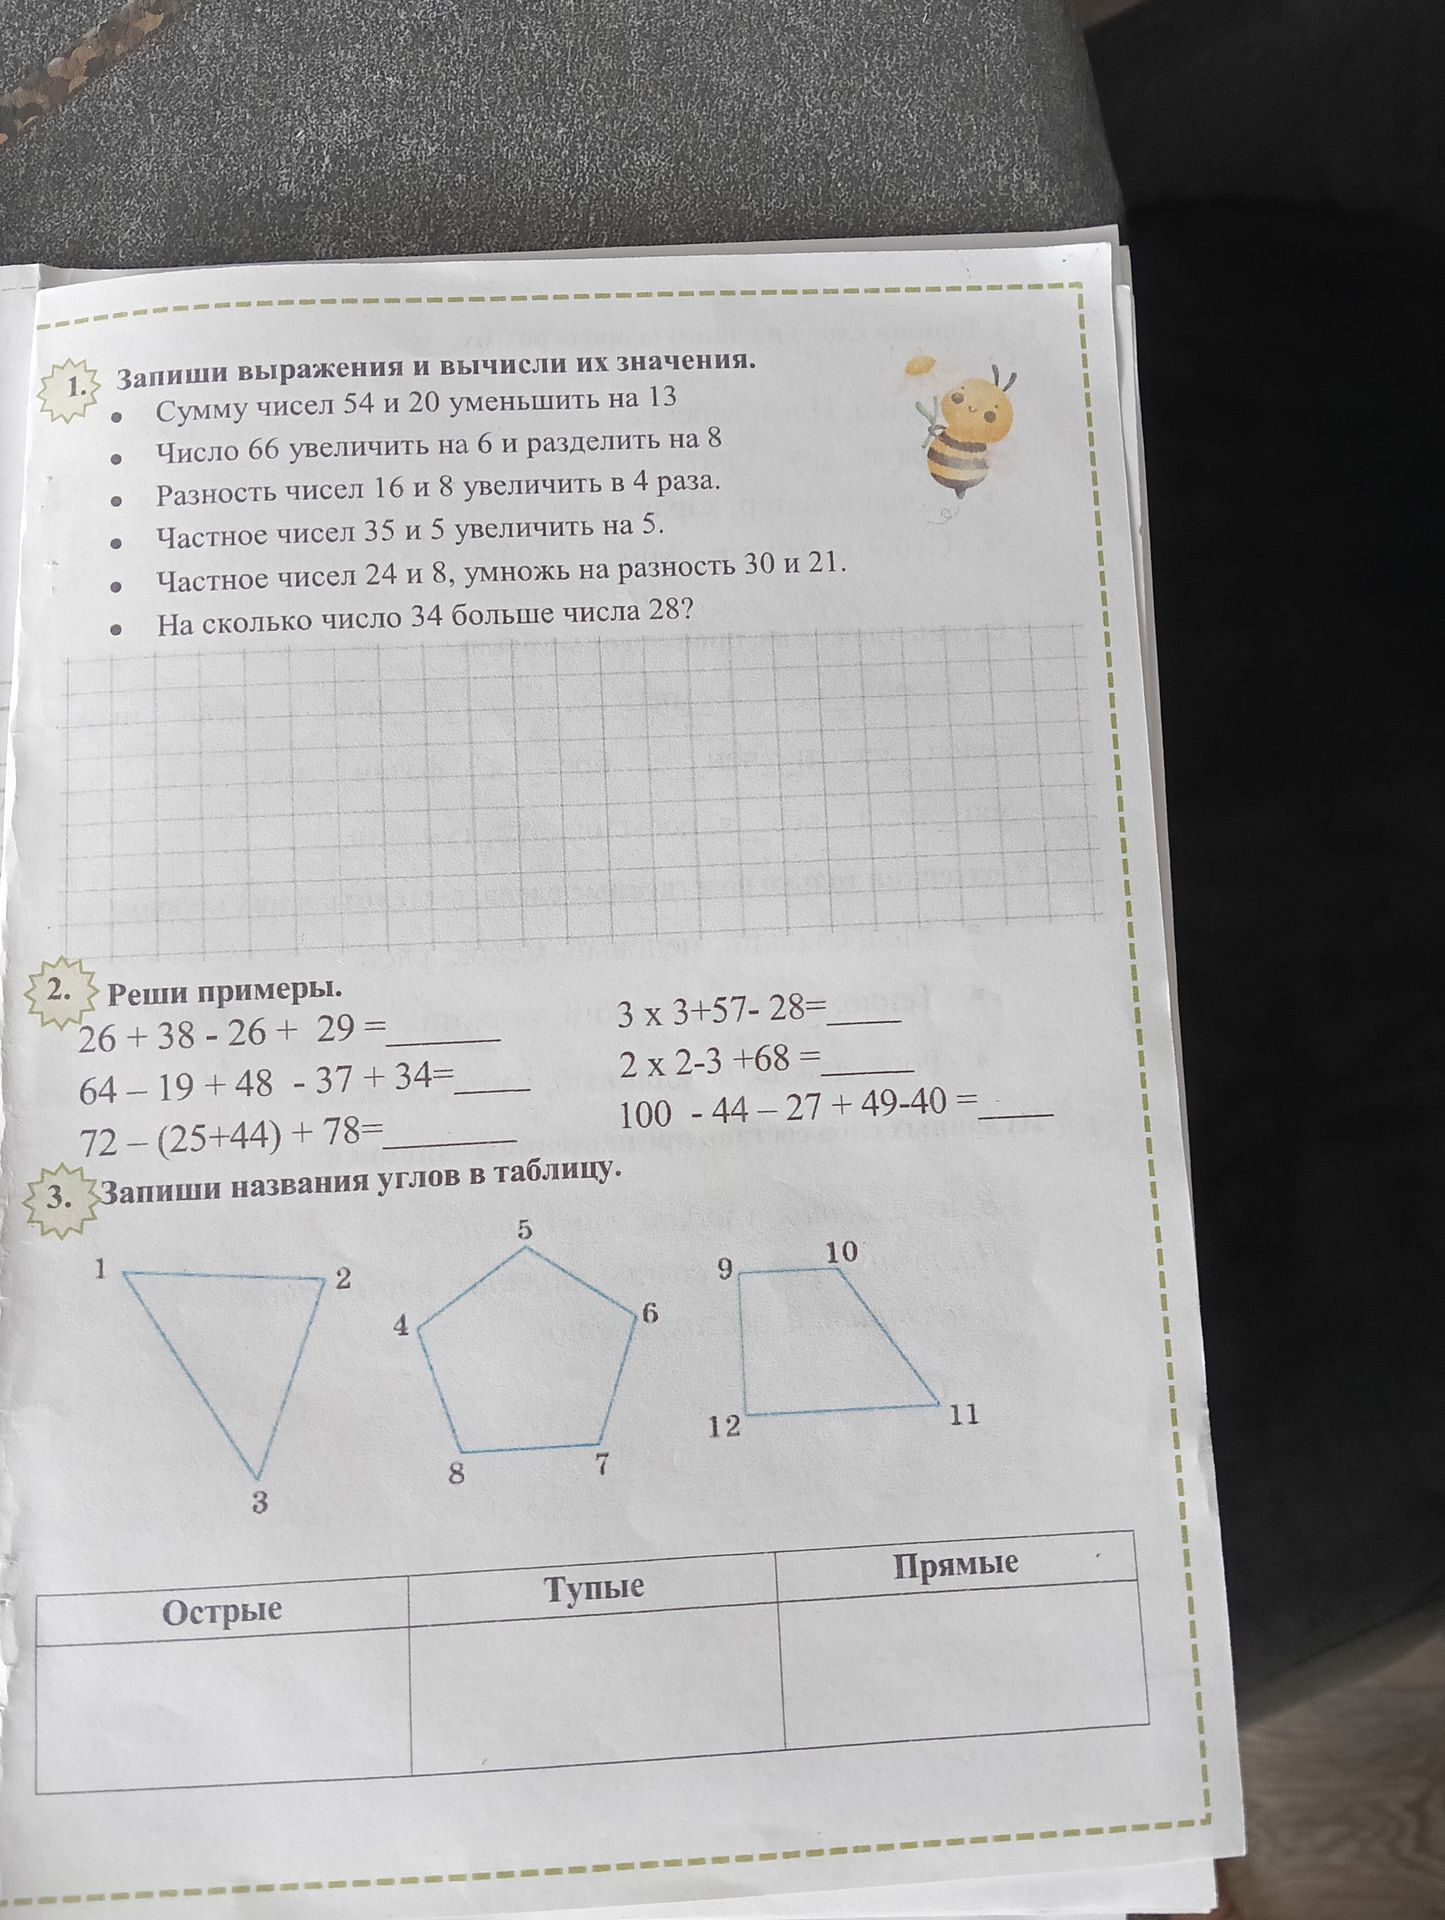 1. Запиши выражения и вычисли их значения.
• Сумму чисел 54 и 20 уменьшить на 13
• Число 66 увеличить на 6 и разделить на 8
• Разность чисел 16 и 8 увеличить в 4 раза.
• Частное чисел 35 и 5 увеличить на 5.
• Частное чисел 24 и 8, умножь на разность 30 и 21.
• На сколько число 34 больше числа 28?
2. Реши примеры.
26 + 38 - 26 + 29 =______
3 х 3+57- 28=____
64 – 19 + 48 - 37 + 34=____
2 х 2-3 +68 =_____
72 – (25+44) + 78=_______
100 - 44 – 27 + 49-40 =____
3. Запиши названия углов в таблицу.
1 2 3
4 5 6 7 8
9 10 11 12
Острые Тупые Прямые